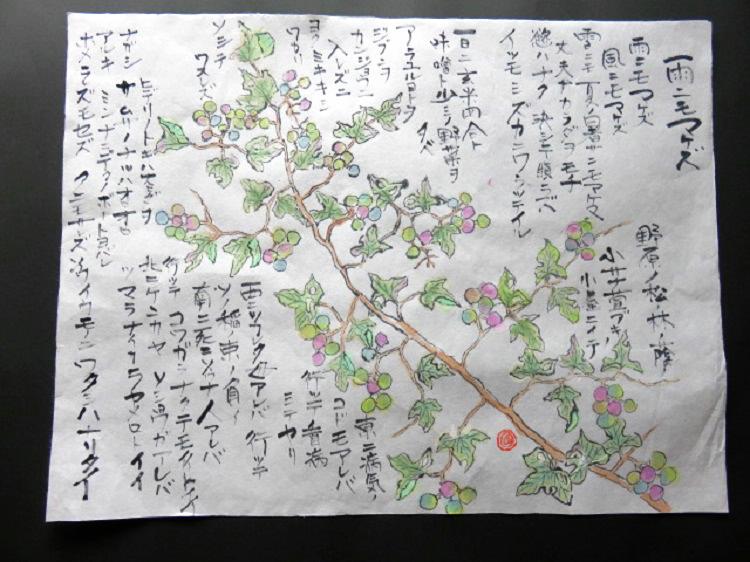 雨ニモマケズ
雨ニモマケズ
風ニモマケズ
雪ニモ夏ノ暑サニモマケヌ
丈夫ナカラダヲモチ
慾ハナク 決シテ瞋ラズ
イツモシズカニワラッテイル
一日ニ玄米四合ト
味噌ト少シノ野菜ヲ
タベ
アラユルコトヲ
ジブンヲ
カンジョウニ
入レズニ
ヨクミキキシ
ワカリ
ソシテ
ワスレズ
野原ノ松ノ林ノ蔭ノ
小サナ萱ブキノ
小屋ニイテ
東ニ病気ノ
コドモアレバ
行ッテ看病
シテヤリ
西ニツカレタ母アレバ 行ッテ
ソノ稲ノ束ヲ負イ
南ニ死ニソウナ人アレバ
行ッテ コワガラナクテモイイトイイ
北ニケンカヤ ソショウガアレバ
ツマラナイカラヤメロトイイ
ヒデリノトキハナミダヲ
ナガシ サムサノナツハオロオロ
アルキ ミンナニデクノボートヨバレ
ホメラレモセズ クニモサレズ ソウイウモノニ ワタシハナリタイ